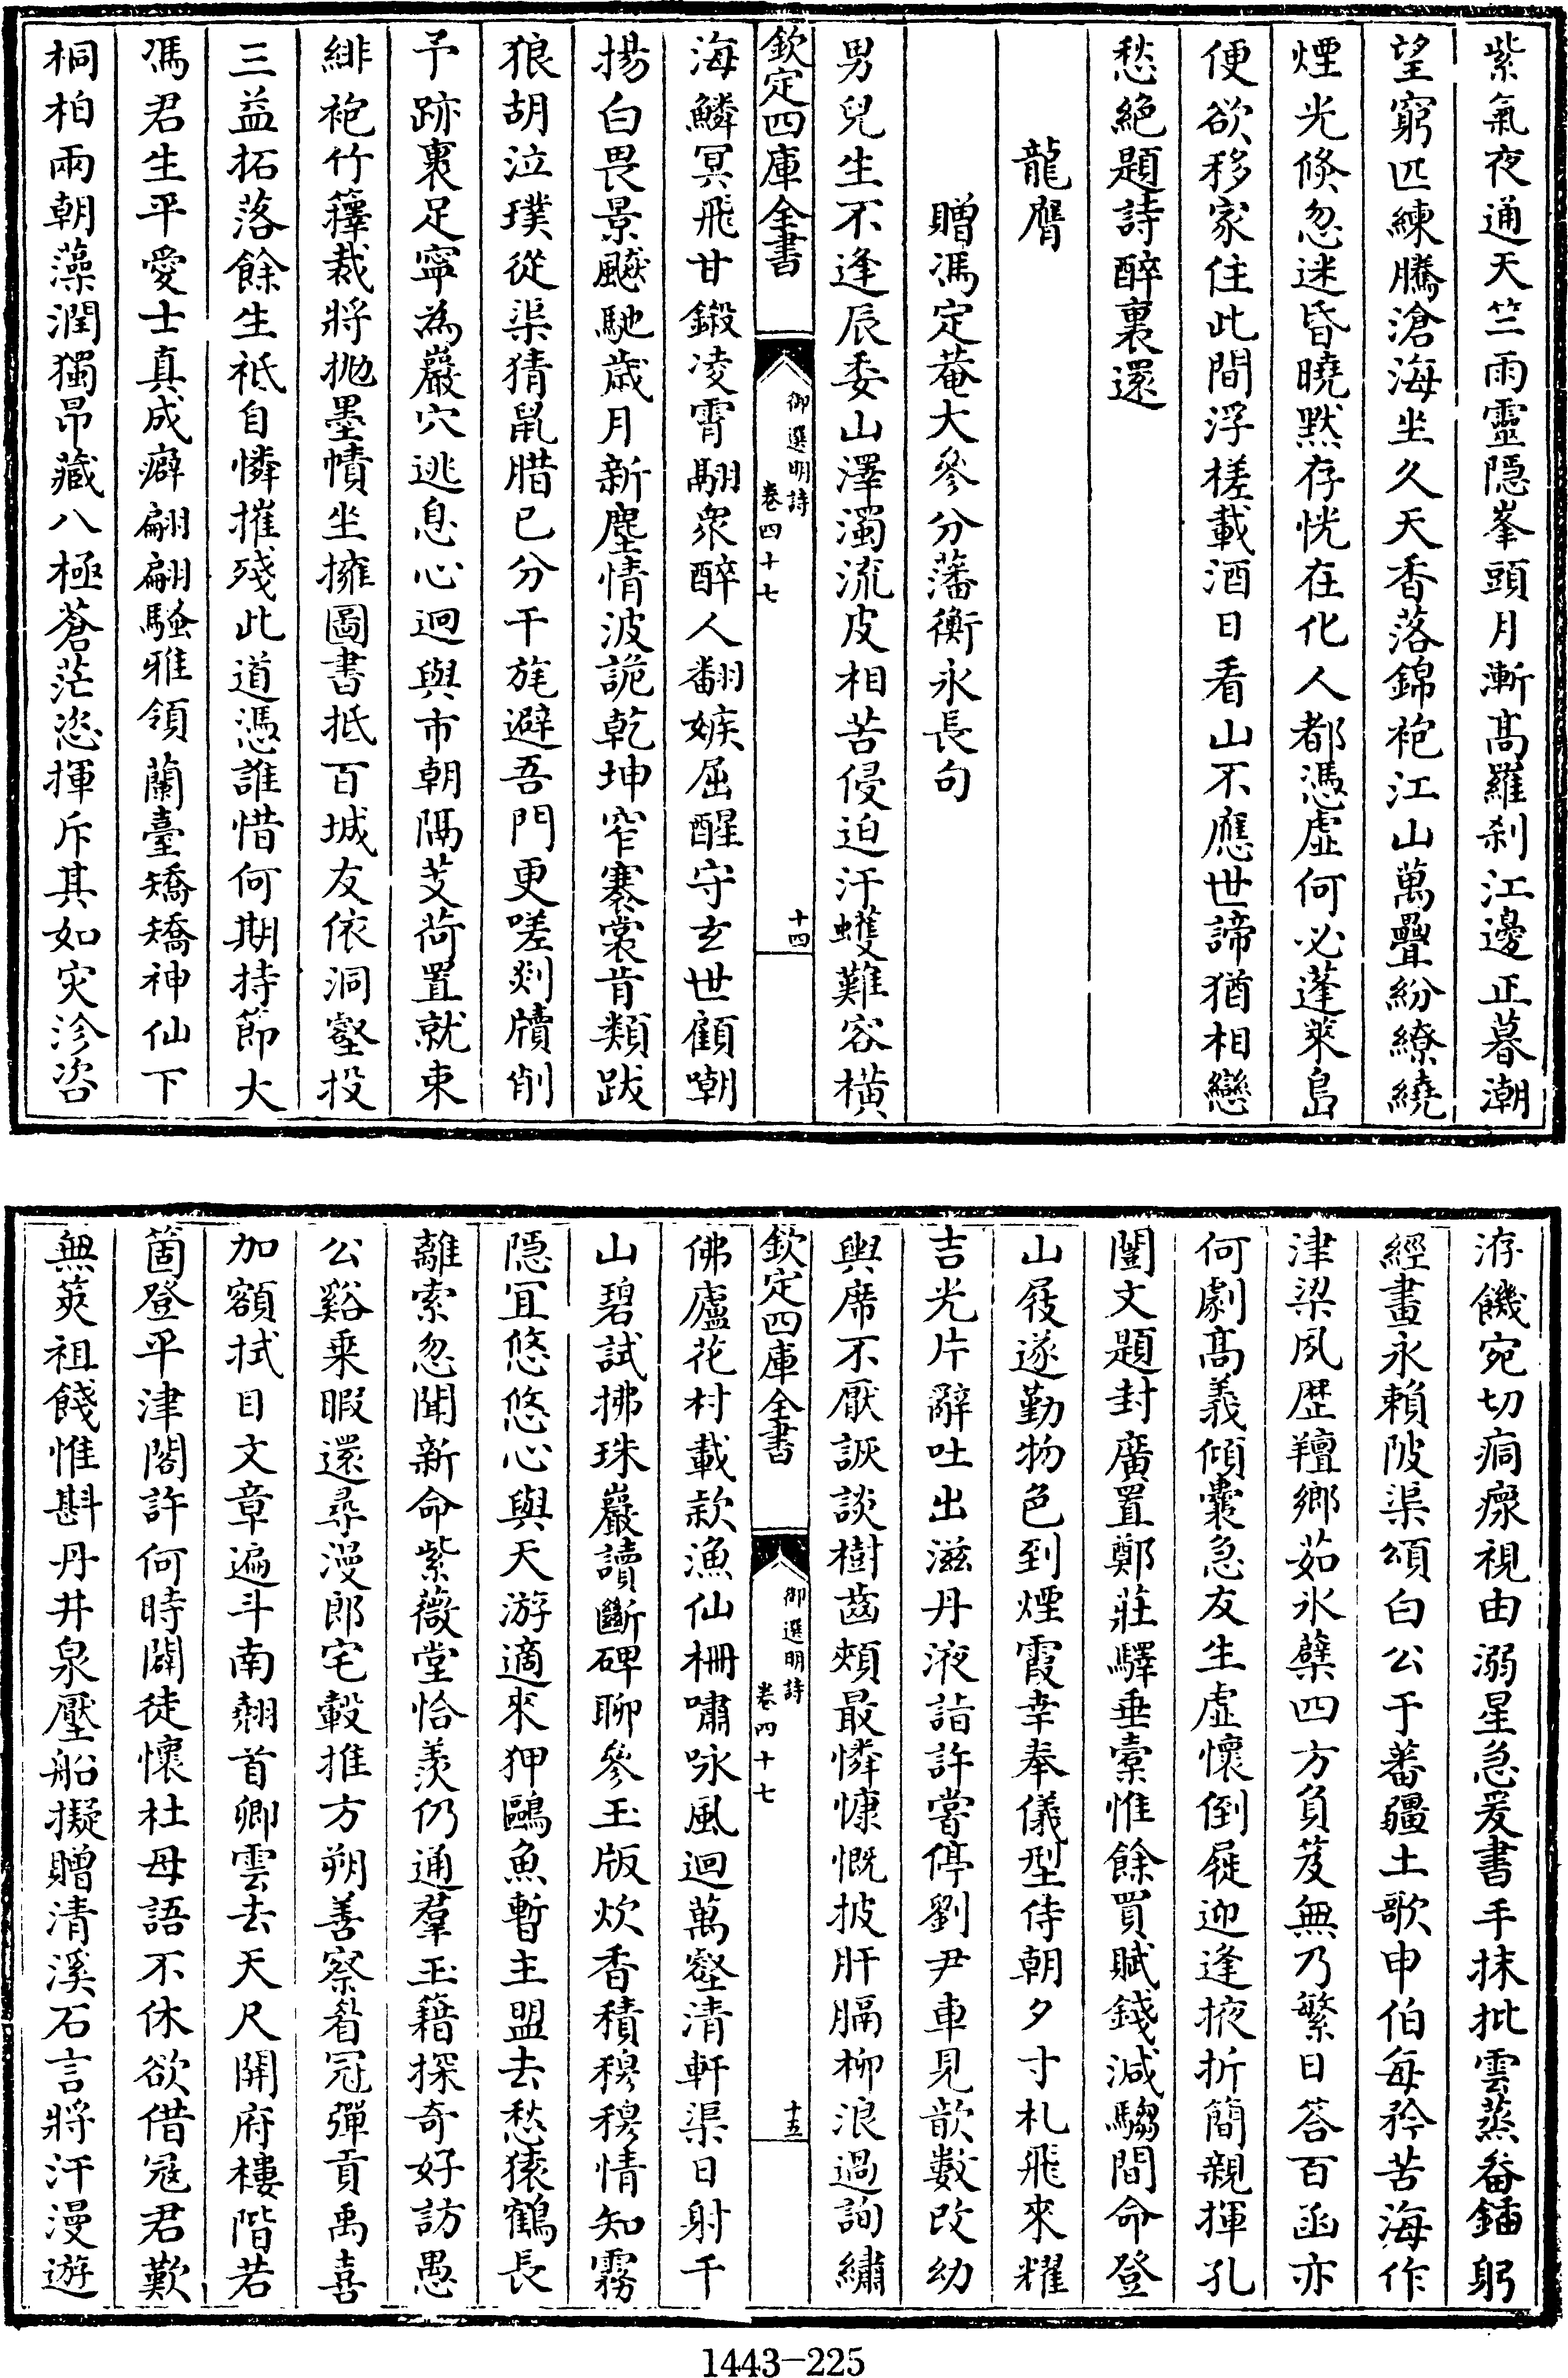 紫氣夜通天竺雨靈隠峯頭月漸髙羅刹江邊正暮潮
望窮匹練騰滄海坐久天香落錦袍江山萬疊紛繚繞
煙光倐忽迷昏曉默存恍在化人都憑虚何必蓬萊島
便欲移家住此間浮槎載酒日看山不應世諦猶相戀
愁絶題詩醉裏還
龍膺
贈馮定菴大參分藩衡永長句
男兒生不逢辰委山澤濁流皮相苦侵迫汗蠖難容横
欽定四庫全書
御選明詩
卷四十七
十四
海鱗冥飛甘鍛凌霄翮衆醉人翻嫉屈醒守玄世顧嘲
揚白畏景飈馳歲月新塵情波詭乾坤窄褰裳肯類跋
狼胡泣璞從渠猜鼠腊已分干旄避吾門更嗟剡牘削
予跡裹足寧為巖穴逃息心迥與市朝隔芰荷置就東
緋袍竹籜裁將抛墨幘坐擁圖書抵百城友依洞壑投
三益拓落餘生祇自憐摧殘此道憑誰惜何期持節大
馮君生平愛士真成癖翩翩騷雅領蘭臺矯矯神仙下
桐柏兩朝藻潤獨昂藏八極蒼茫恣揮斥其如灾沴咨
洊饑宛切痌瘝視由溺星急爰書手抹批雲蒸畚鍤躬
經畫永賴陂渠頌白公于蕃疆土歌申伯每矜苦海作
津梁夙歴羶鄉茹氷蘗四方負笈無乃繁日答百函亦
何劇髙義傾囊急友生虚懷倒屣迎逢掖折簡親揮孔
闓文題封廣置鄭莊驛垂槖惟餘買賦錢減騶間命登
山屐遂勤物色到煙霞幸奉儀型侍朝夕寸札飛來耀
吉光片辭吐出滋丹液詣許嘗停劉尹車見歆數改幼
輿席不厭詼談樹齒頰最憐慷慨披肝膈柳浪過詢繡
欽定四庫全書
御選明詩
卷四十七
十五
佛廬花村載款漁仙柵嘯咏風迴萬壑清軒渠日射千
山碧試拂珠巖讀斷碑聊參玉版炊香積穆穆情知霧
隠冝悠悠心與天游適來狎鷗魚暫主盟去愁猿鶴長
離索忽聞新命紫薇堂恰羨仍通羣玉籍探奇好訪愚
公谿乗暇還尋漫郎宅轂推方朔善察眉冠彈貢禹喜
加額拭目文章遍斗南翹首卿雲去天尺開府樓階若
箇登平津閣許何時闢徒懷杜母語不休欲借冦君歎
無筴祖餞惟斟丹井泉壓船擬贈清溪石言將汗漫遊
1443-225